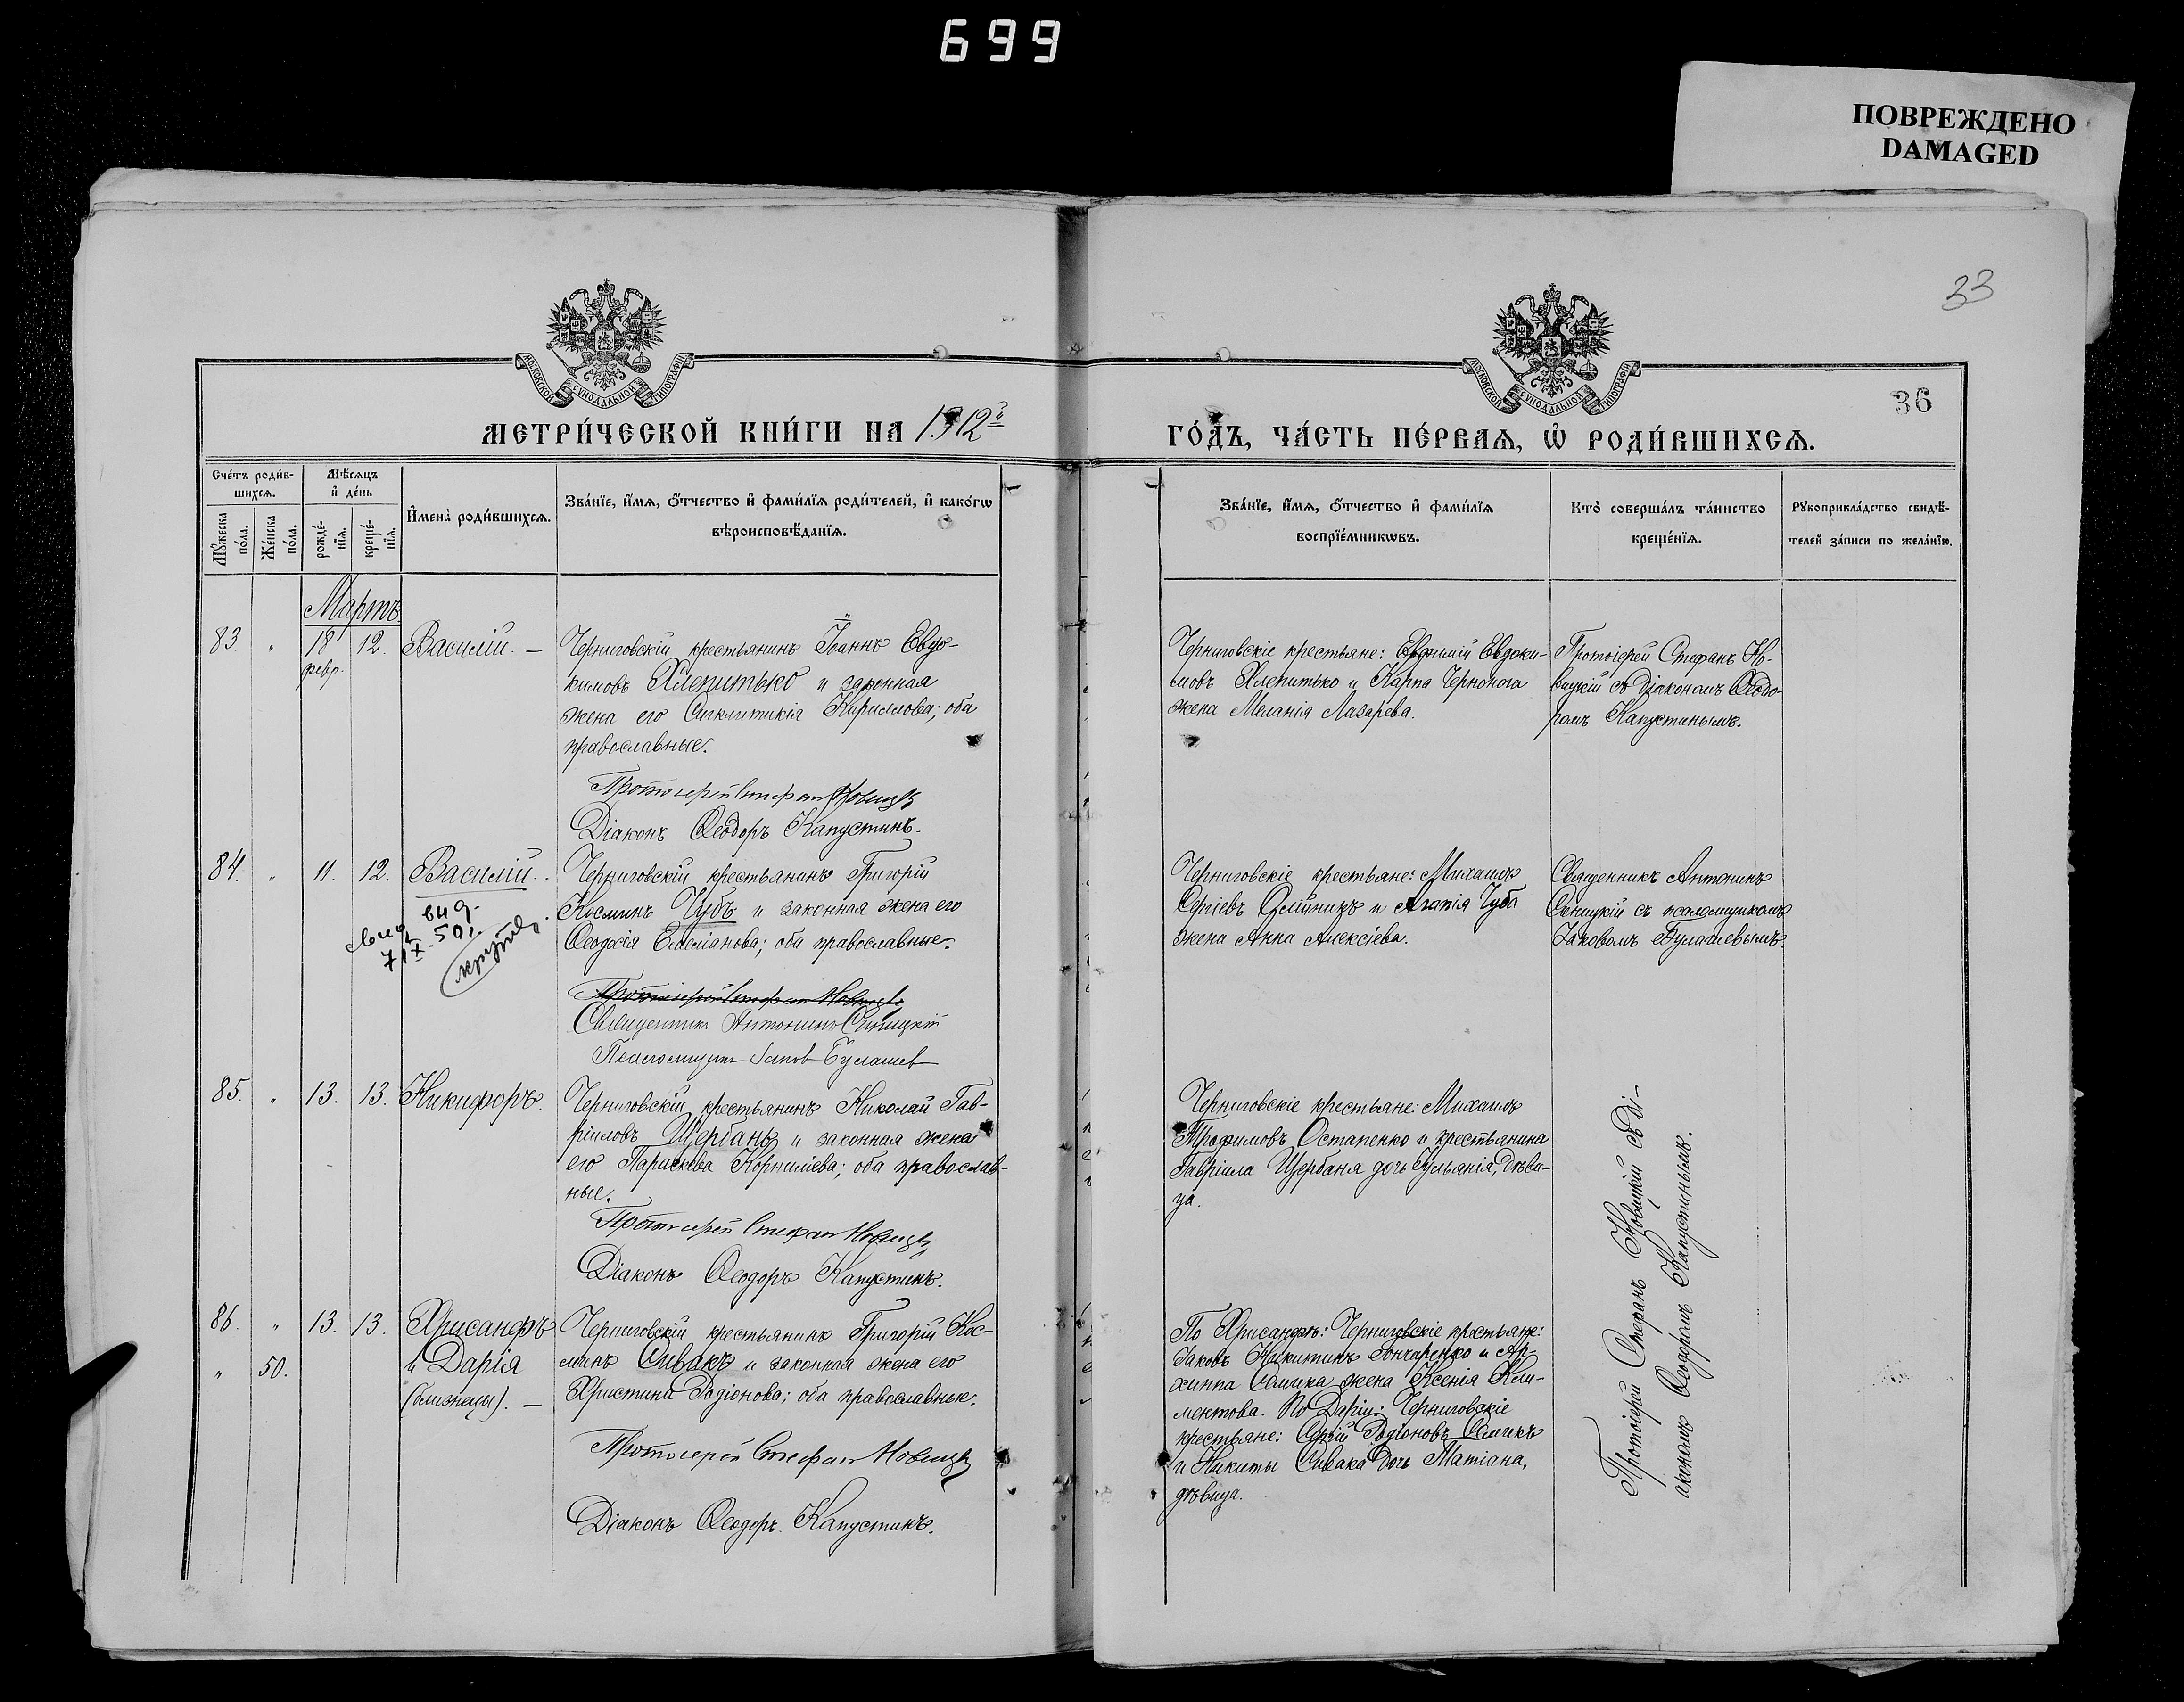 699
ПОВРЕЖДЕНО
DAMAGED
33
36
МОСКОВСКОЙ СУНОДАЛЬНОЙ ТИПОГРАФІИ
МОСКОВСКОЙ СУНОДАЛЬНОЙ ТИПОГРАФІИ
МЕТРИ́ЧЕСКОЙ КНИ́ГИ НА 1912й
ГО́ДЪ, ЧА́СТЬ ПЕ́РВАѦ, Ѡ҆ РОДИ́ВШИХСѦ.
Сче́тъ роди́в-
шихсѧ.
Мѣ́сѧцъ
и҆ де́нь
Мꙋ́жеска
по́ла.
Же́нска
по́ла.
рожде́-
нїѧ.
креще́-
нїѧ.
И҆мена̀ роди́вшихсѧ.
Зва́нїе, и҆́мѧ, ѻ҆́тчество и҆ фамѝлїѧ роди́телей, и҆ како́гѡ
вѣроисповѣ́данїѧ.
Зва́нїе, и҆́мѧ, ѻ҆́тчество и҆ фамѝлїѧ
воспрїе́мникѡвъ.
Кто̀ соверша́лъ та́инство
креще́нїѧ.
Рꙋкоприкла́дство свидѣ́-
телей за́писи по жела́нїю.
Мартъ
83. " 18 12. Василій. —
февр.
Черниговскій крестьянинъ Іоаннъ Евдо-
кимовъ Хлепитько и законная
жена его Синклитикія Кириллова; оба
православные.
Протоіерей Стефан Новицкі
Діаконъ Ѳеодоръ Капустинъ.
Черниговскіе крестьяне: Евфимій Евдоки-
мовъ Хлепитько и Карпа Чернонога
жена Меланія Лазарева.
Протоіерей Стефанъ Но-
вицкій съ діакономъ Ѳеодо-
ромъ Капустинымъ.
84. " 11. 12. Василій.
выд.
7 IX. 50г.
Черниговскій крестьянинъ Григорій
Косминъ Чубъ и законная жена его
Ѳеодосія Емиліанова; оба православные.
Протоіерей Стефан Новицкі
Священникъ Антонинъ Сѣницкій
Псаломщикъ Іаков Булашев
Черниговскіе крестьяне: Михаилъ
Сергіевъ Олійникъ и Агапія Чуба
жена Анна Алексіева.
Священникъ Антонинъ
Сѣницкій съ псаломщикомъ
Іаковомъ Булашевымъ.
85. " 13. 13. Никифоръ.
Черниговскій крестьянинъ Николай Гав-
ріиловъ Щербань и законная жена
его Параскева Корниліева; оба православ-
ные.
Протоіерей Стефан Новицкі
Діаконъ Ѳеодоръ Капустинъ.
Черниговскіе крестьяне: Михаилъ
Трофимовъ Остапенко и крестьянина
Гавріила Щербаня дочь Іуліанія, дѣви-
ца.
Протоіерей Стефанъ Новицкій съ ді-
акономъ Ѳеодоромъ Капустинымъ.
86. " 13. 13. Хрисанфъ
" 50. и Дарія
(близнецы). —
Черниговскій крестьянинъ Григорій Кос-
минъ Сивакъ и законная жена его
Христина Родіонова; оба православные.
Протоіерей Стефан Новицкі
Діаконъ Ѳеодоръ Капустинъ.
По Хрисанфѣ: Черниговскіе крестьяне:
Іаковъ Никитинъ Гончаренко и Ар-
хиппа Семика жена Ксенія Кли-
ментова. По Даріи: Черниговскіе
крестьяне: Сергій Родіоновъ Семикъ
и Никиты Сивака дочь Матіана,
дѣвица.